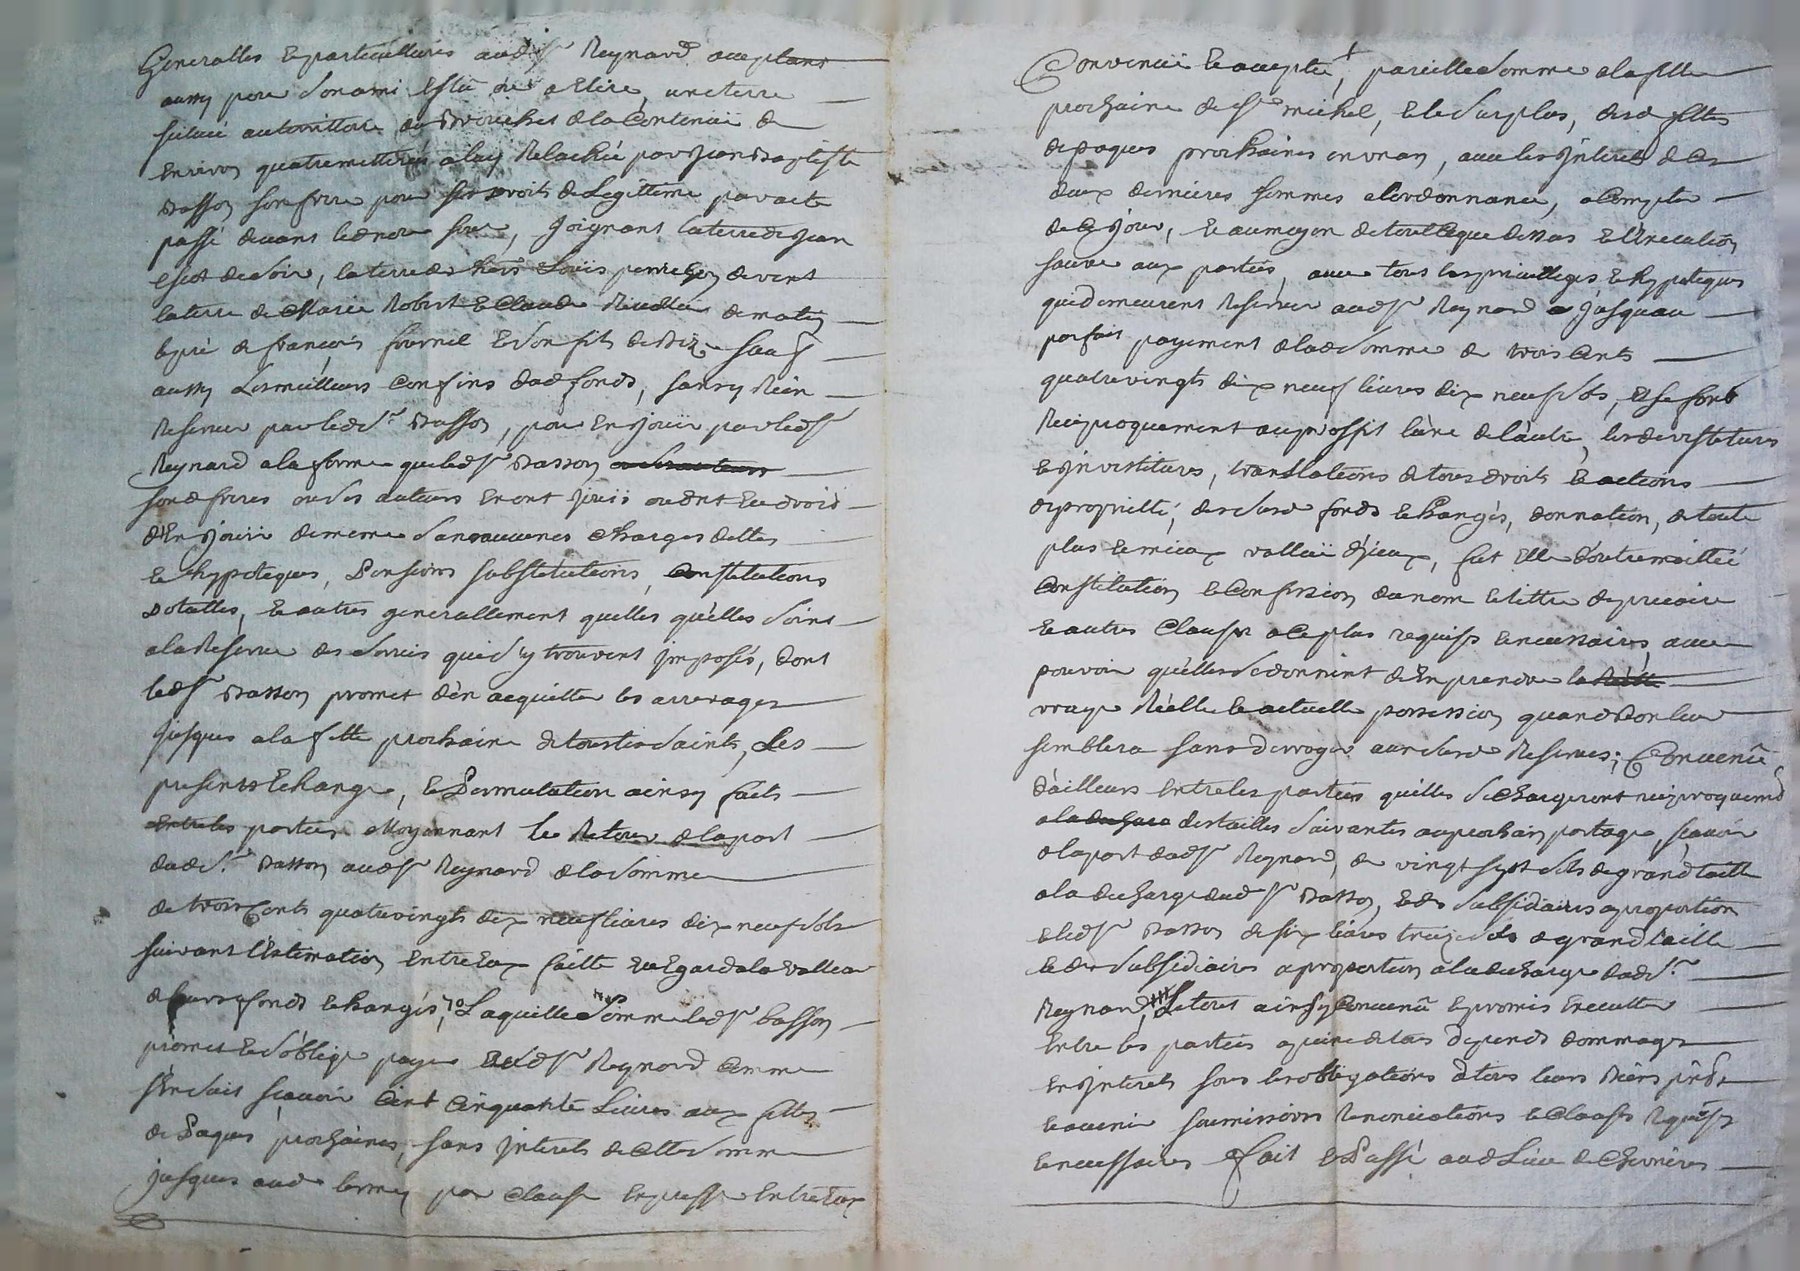 Generalles et particullieres aud Sr Reynard acceptant
aussy pour son ami esleu ou a elire, une terre
scituée au territoire de de la Contenüe de
environ quatre metterées a luy Relachée par Jean Baptiste
Basson son frere pour ses droits de Legitime par acte
passé devant led nore soue, Joignant la terre de Jean
de soir, la terre des hoirs Loüis de vent
la terre de Marie Robert et Claude de matin
le pré de francois fournel et son fils de Bize sauf
aussy Les meilleurs Confins dud fonds, sans y Rien
Reserver par led Sr Basson, pour En Joüir par led Sr
Reynard a la forme que led Sr Basson
sond freres ou ses auteurs En ont Joüis ou dnt Eu droit
d'En Joüir de meme sans aucunes Charges dettes
et hypoteques, Pensions substitutions, Constitutions
Dotalles, et autres generallement quelles qu'elles soint
a la Reserve des servis qui s'y trouvent Imposés, dont
led Sr Basson promet d'en acquitter les arrerages
Jusques a la fette prochaine de tous les saints, Les
presents Echange, et Permutation ainsy faits
entre les parties Moyennant le Retour de la part
dud Sr Basson aud Sr Reynard de la somme
de trois Cents quatre vingts dix neuf livres dix neuf sols
suivant l'Estimation Entre Eux faitte Eu Egard a la valleur
de leurs fonds Echangés, Laquelle somme led Sr basson
promet et s'oblige payer aud Sr Reynard Comme
s'Ensuit scavoir Cent Cinquante Livres aux fettes
de Paques prochaines, sans Interets de Cette somme
Jusques aud terme par Clause Expresse Entre Eux
Convenüe et acceptée, pareille somme a la fette
prochaine de St michel, et le surplus, des d fettes
de paques prochaines en un an, avec les Interets de Ces
deux dernieres sommes a l'ordonnance, a Compter
de Ce Jour, et au moyen de tout Ce que dessus et l'Execution
sauve aux parties, avec tous les privilleges et hypoteques
qui demeurent Reservés aud Sr Reynard Jusqu'au
parfait payement de lad somme de trois Cents
quatre vingts dix neuf livres dix neuf sols, et se font
Reciproquement au proffit l'une de l'autre, les devestitures
et Investitures, translations de tous droits et actions
de proprietté, des susd fonds Echangés, donnation, de toute
plus et mieux vallüe d'Iceux, fut Elle d'outre moittié
Constitution et Confession du nom et titre de precaire
et autres Clauses a Ce plus requises et necessaires, avec
pouvoir qu'elles se donnent d'En prendre
vraye Réelle et actuelle possession quand Bon leur
semblera sans deroger aux susd Reserves; Convenü
d'ailleurs Entre les parties qu'elles se Chargeront reciproquemt
a la des tailles suivantes au prochain partage, scavoir
a la part dud Sr Reynard, de vingt sept sols de grand taille
a la decharge dud Sr Basson, et des subsidiaires a proportion
et led Sr Basson de six livres treize sols de grand taille
et des subsidiaires a proportion a la decharge dud Sr
Reynard, Le tout ainsy Convenü et promis Executter
Entre les parties a peine de tous depends dommages
En Interets sous les obligations de tous leurs Biens pnts
et avenir soumissions Renonciations et Clauses Requises
et necessaires fait et Passé aud Lieu de Chevrieres